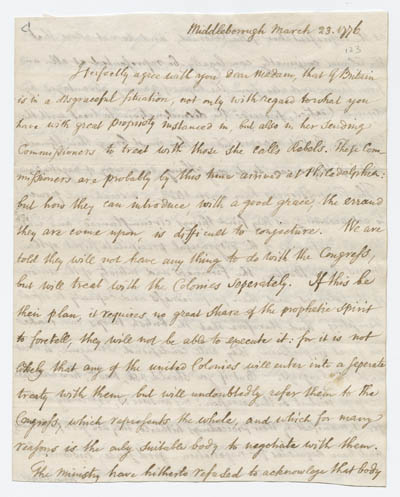 Middleborough March 23. 1776
123
I Perfectly agree with you Dear Madam, that G Britain
is in a disgraceful situation, not only with regard to what you
have with great propriety instanced in, but also in her sending
Commissioners to treat with those she calls Rebels. These Com-
missioners are probably by this time arrived at Philadelphia:
but how they can introduce with a good grace, the errand
they are come upon is difficult to conjecture. We are
told they will not have any thing to do with the Congress,
but will treat with the Colonies seperately. If this be
their plan, it requires no great share of the prophetic spirit
to foretell, they will not be able to execute it: for it is not
likely that any of the united Colonies will enter into a seperate
treaty with them, but will undoubtedly refer them to the
Congress, which represents the whole, and which for many
reasons is the only suitable body to negotiate with them.
The ministry have hitherto refused to acknowlege that body